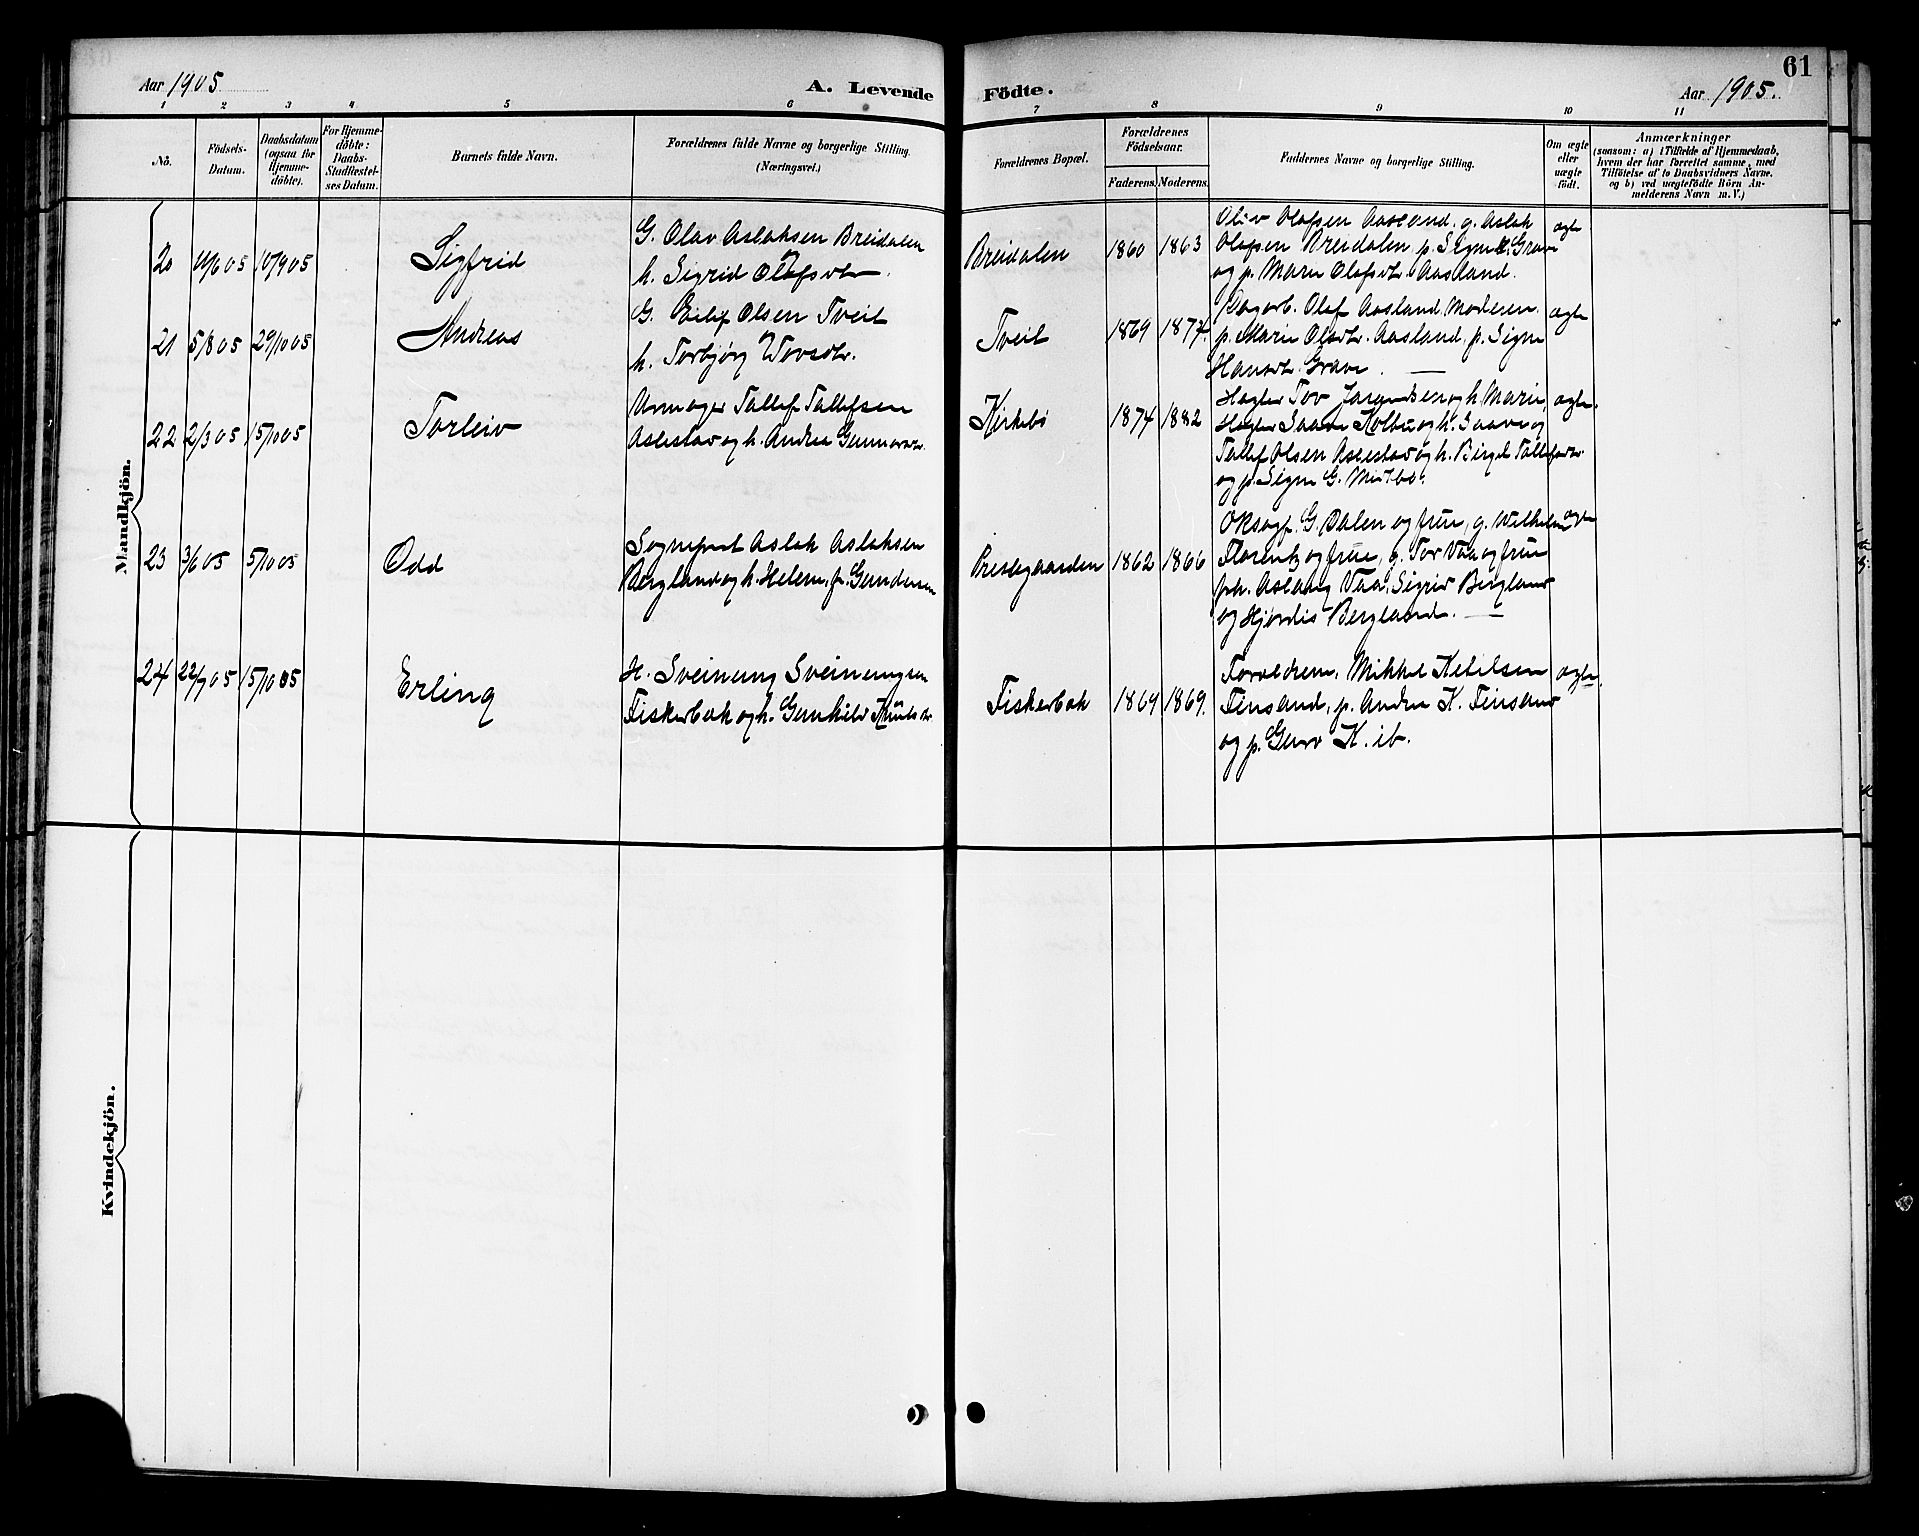 61
Aar 1905
A. Levende
Födte.
Aar 1905.
1 2 3 4 5 6 7 8 9 10 11
No.
Födsels-
Datum.
Daabsdatum
(ogsaa for
Hjemme-
döbte).
For Hjemme-
döbte:
Daabs-
Stadfæstel-
ses Datum.
Barnets fulde Navn.
Forældrenes fulde Navne og borgerlige Stilling.
(Næringsvei.)
Forældrenes Bopæl.
Forældrenes
Födselsaar.
Faderens. Moderens.
Faddernes Navne og borgerlige Stilling.
Om ægte
eller
uægte
födt.
Anmærkninger
(saasom: a) i Tilfælde af Hjemmedaab,
hvem der har forrettet samme, med
Tilföielse af to Daabsvidners Navne,
og b) ved uægtefödte Börn An-
melderens Navn m. V.)
Mandkjön.
20
10/9 05
Sigfrid
G. Olav Aslaksen Breidalen
h. Sigrid Olafsdtr.
Breidalen
1860 1863
Oliv Olafsen Aasland. g. Aslak
Olafsen Breidalen p. Signe Grave
og p. Marie Olafsdtr. Aasland.
ægte
21 5/8 05 29/10 05
Andreas
G. Eilif Olsen Tveit
h. Torbjørg
Tveit
1869 1874
Dagarb. Olaf Aasland, Moderen.
p. Marie Olsdtr. Aasland, p. Signe
Hansdtr. Grave.
ægte
22 2/3 05 15/10 05
Torleiv
Urmager Tallef Tallefsen
og h. Andrea Gunnarsdtr.
Kirkebø
1874 1882
Tov og h. Marie,
og h. Gaave og
Tallef Olsen og h. Birgit
og p. Signe G.
ægte.
23 3/6 05 5/10 05
Odd
Sogneprest Aslak Aslaksen
Bergland og h. Helene, f. Gundersen
Prestegaarden
1862 1866
G. Dalen og frue, g. Wilhelm
Florentz og frue, g. Tor Vaa og frue
frk. Aslaug Vaa, Sigrid Bergland
og Hjørdis Bergland.
ægte
24 22/7 05 15/10 05
Erling
H. Sveinung Sveinungsen
Fiskerbæk og h. Gunhild Knutsdtr.
Fiskerbæk
1864 1869.
Forældrene, Mikkel Ketilsen
Finsand, p. Andrea K. Finsand
og p. Guro K. ib.
ægte.
Kvindekjön.